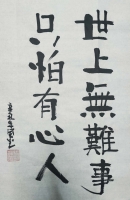 世上無難事
只怕有心人